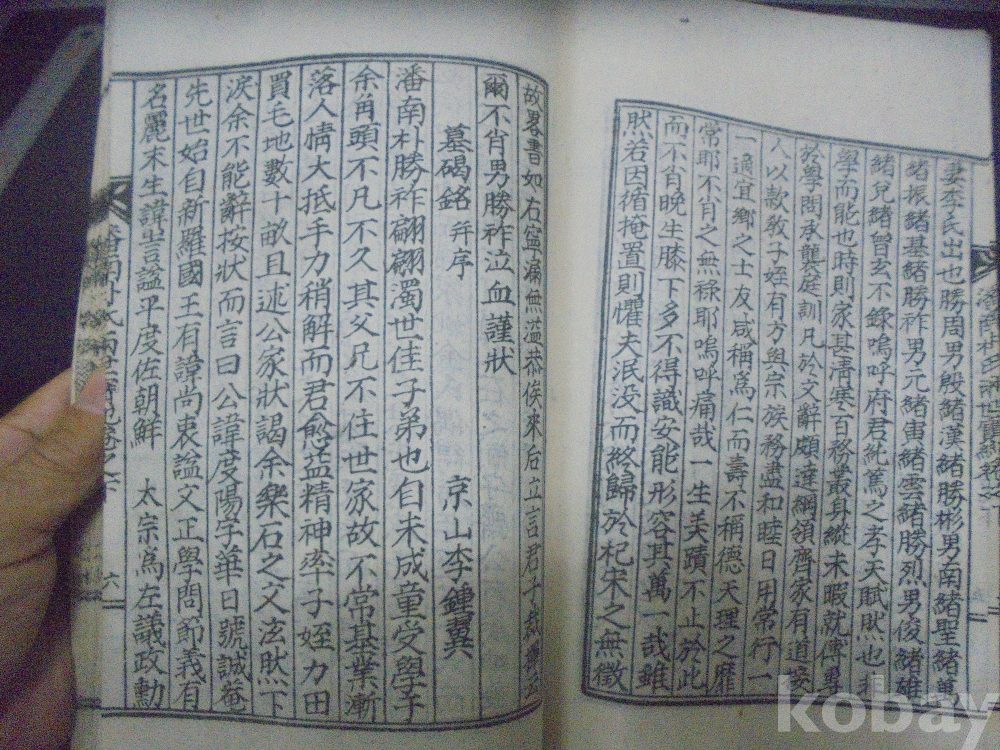 妻李氏出也勝周男殷緒漢緒勝彬男南緒聖緒萬
緒振緒基緒勝祚男元緒寅緒雲緒勝烈男俊緒雄
緒兒緒曾玄不錄嗚呼府君純篤之孝天賦然也
學而能也時則家甚清寒百務叢身縱未暇就傅專
於學問承襲庭訓凡於文辭頗達綱領齊家有道
人以款敎子姪有方與宗族務盡和睦日用常行一
一適宜鄕之士友咸稱爲仁而壽不稱德天理之靡
常耶不肖之無祿耶嗚呼痛哉一生美蹟不止於此
而不肖晚生膝下多不得識安能形容其萬一哉雖
然若因循掩置則懼夫泯没而終歸於杞宋之無徵
故畧書如右寧漏無濫恭俟來后立言君子裁
爾不肖男勝祚泣血謹狀
墓碣銘 幷序 京山李鍾翼
潘南朴勝祚翩翩濁世佳子弟也自未成童受學于
余角頭不凡不久其父兄不住世家故不常基業漸
落人情大抵手力稍解而君愈益精神率子姪力田
買毛地數十畝且述公家狀謁余樂石之文泫然下
淚余不能辭按狀而言曰公諱度陽字華日號誠菴
先世始自新羅國王有諱尚衷謚文正學問節義有
名麗末生諱訔謚平度佐朝鮮 太宗爲左議政勳
六
kobay